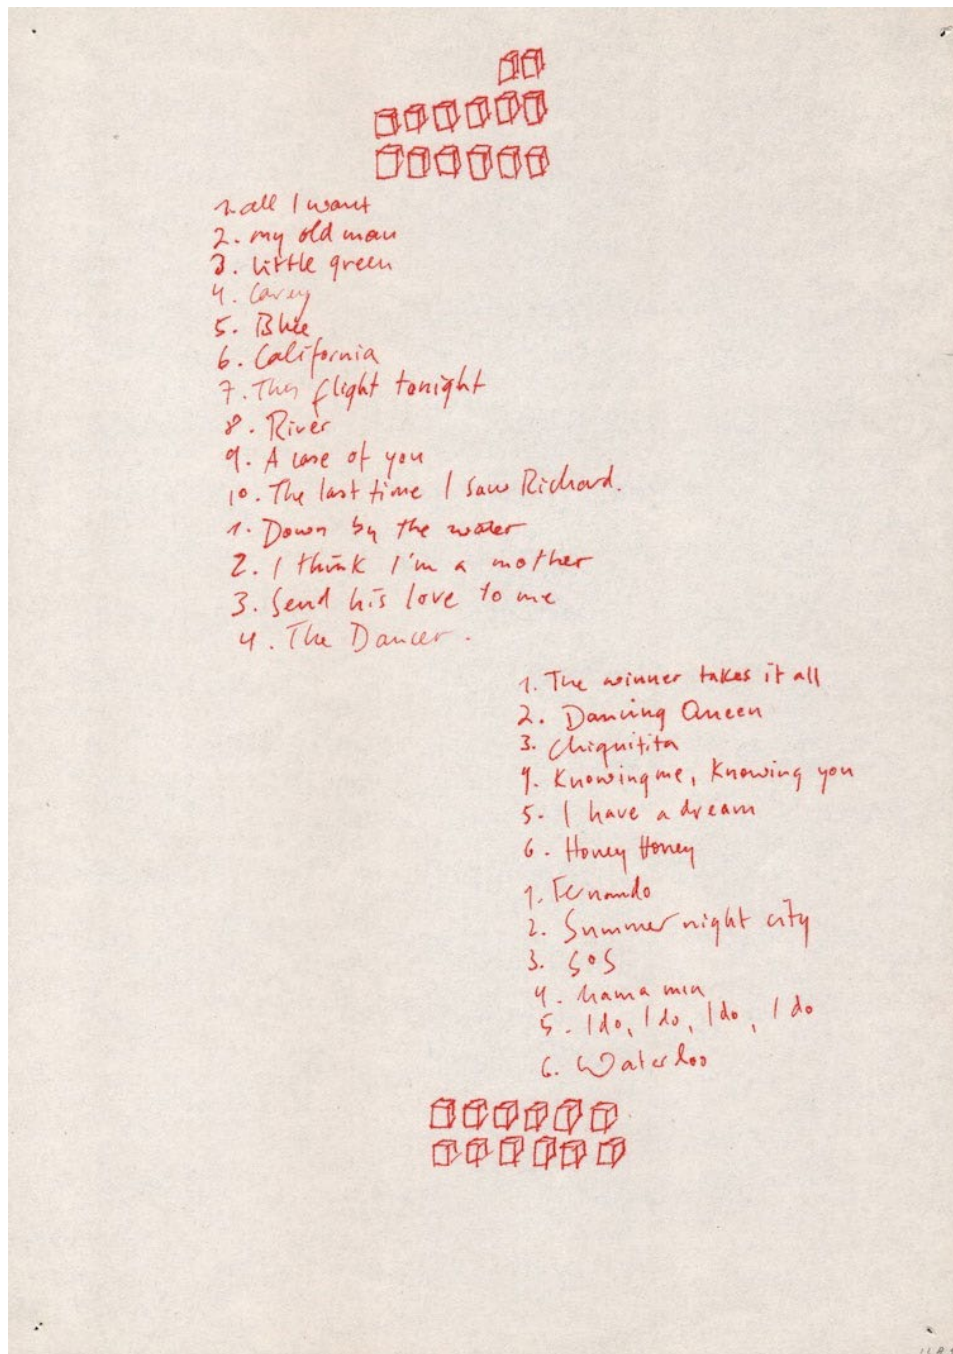 1. all I want
2. my old man
3. little green
4. Carey
5. Blue
6. California
7. This flight tonight
8. River
9. A case of you
10. The last time I saw Richard.
1. Down by the water
2. I think I'm a mother
3. Send his love to me
4. The Dancer.
1. The winner takes it all
2. Dancing Queen
3. Chiquitita
4. Knowing me, Knowing you
5. I have a dream
6. Honey Honey
1. Fernando
2. Summer night city
3. SOS
4. mama mia
5. I do, I do, I do, I do
6. Waterloo